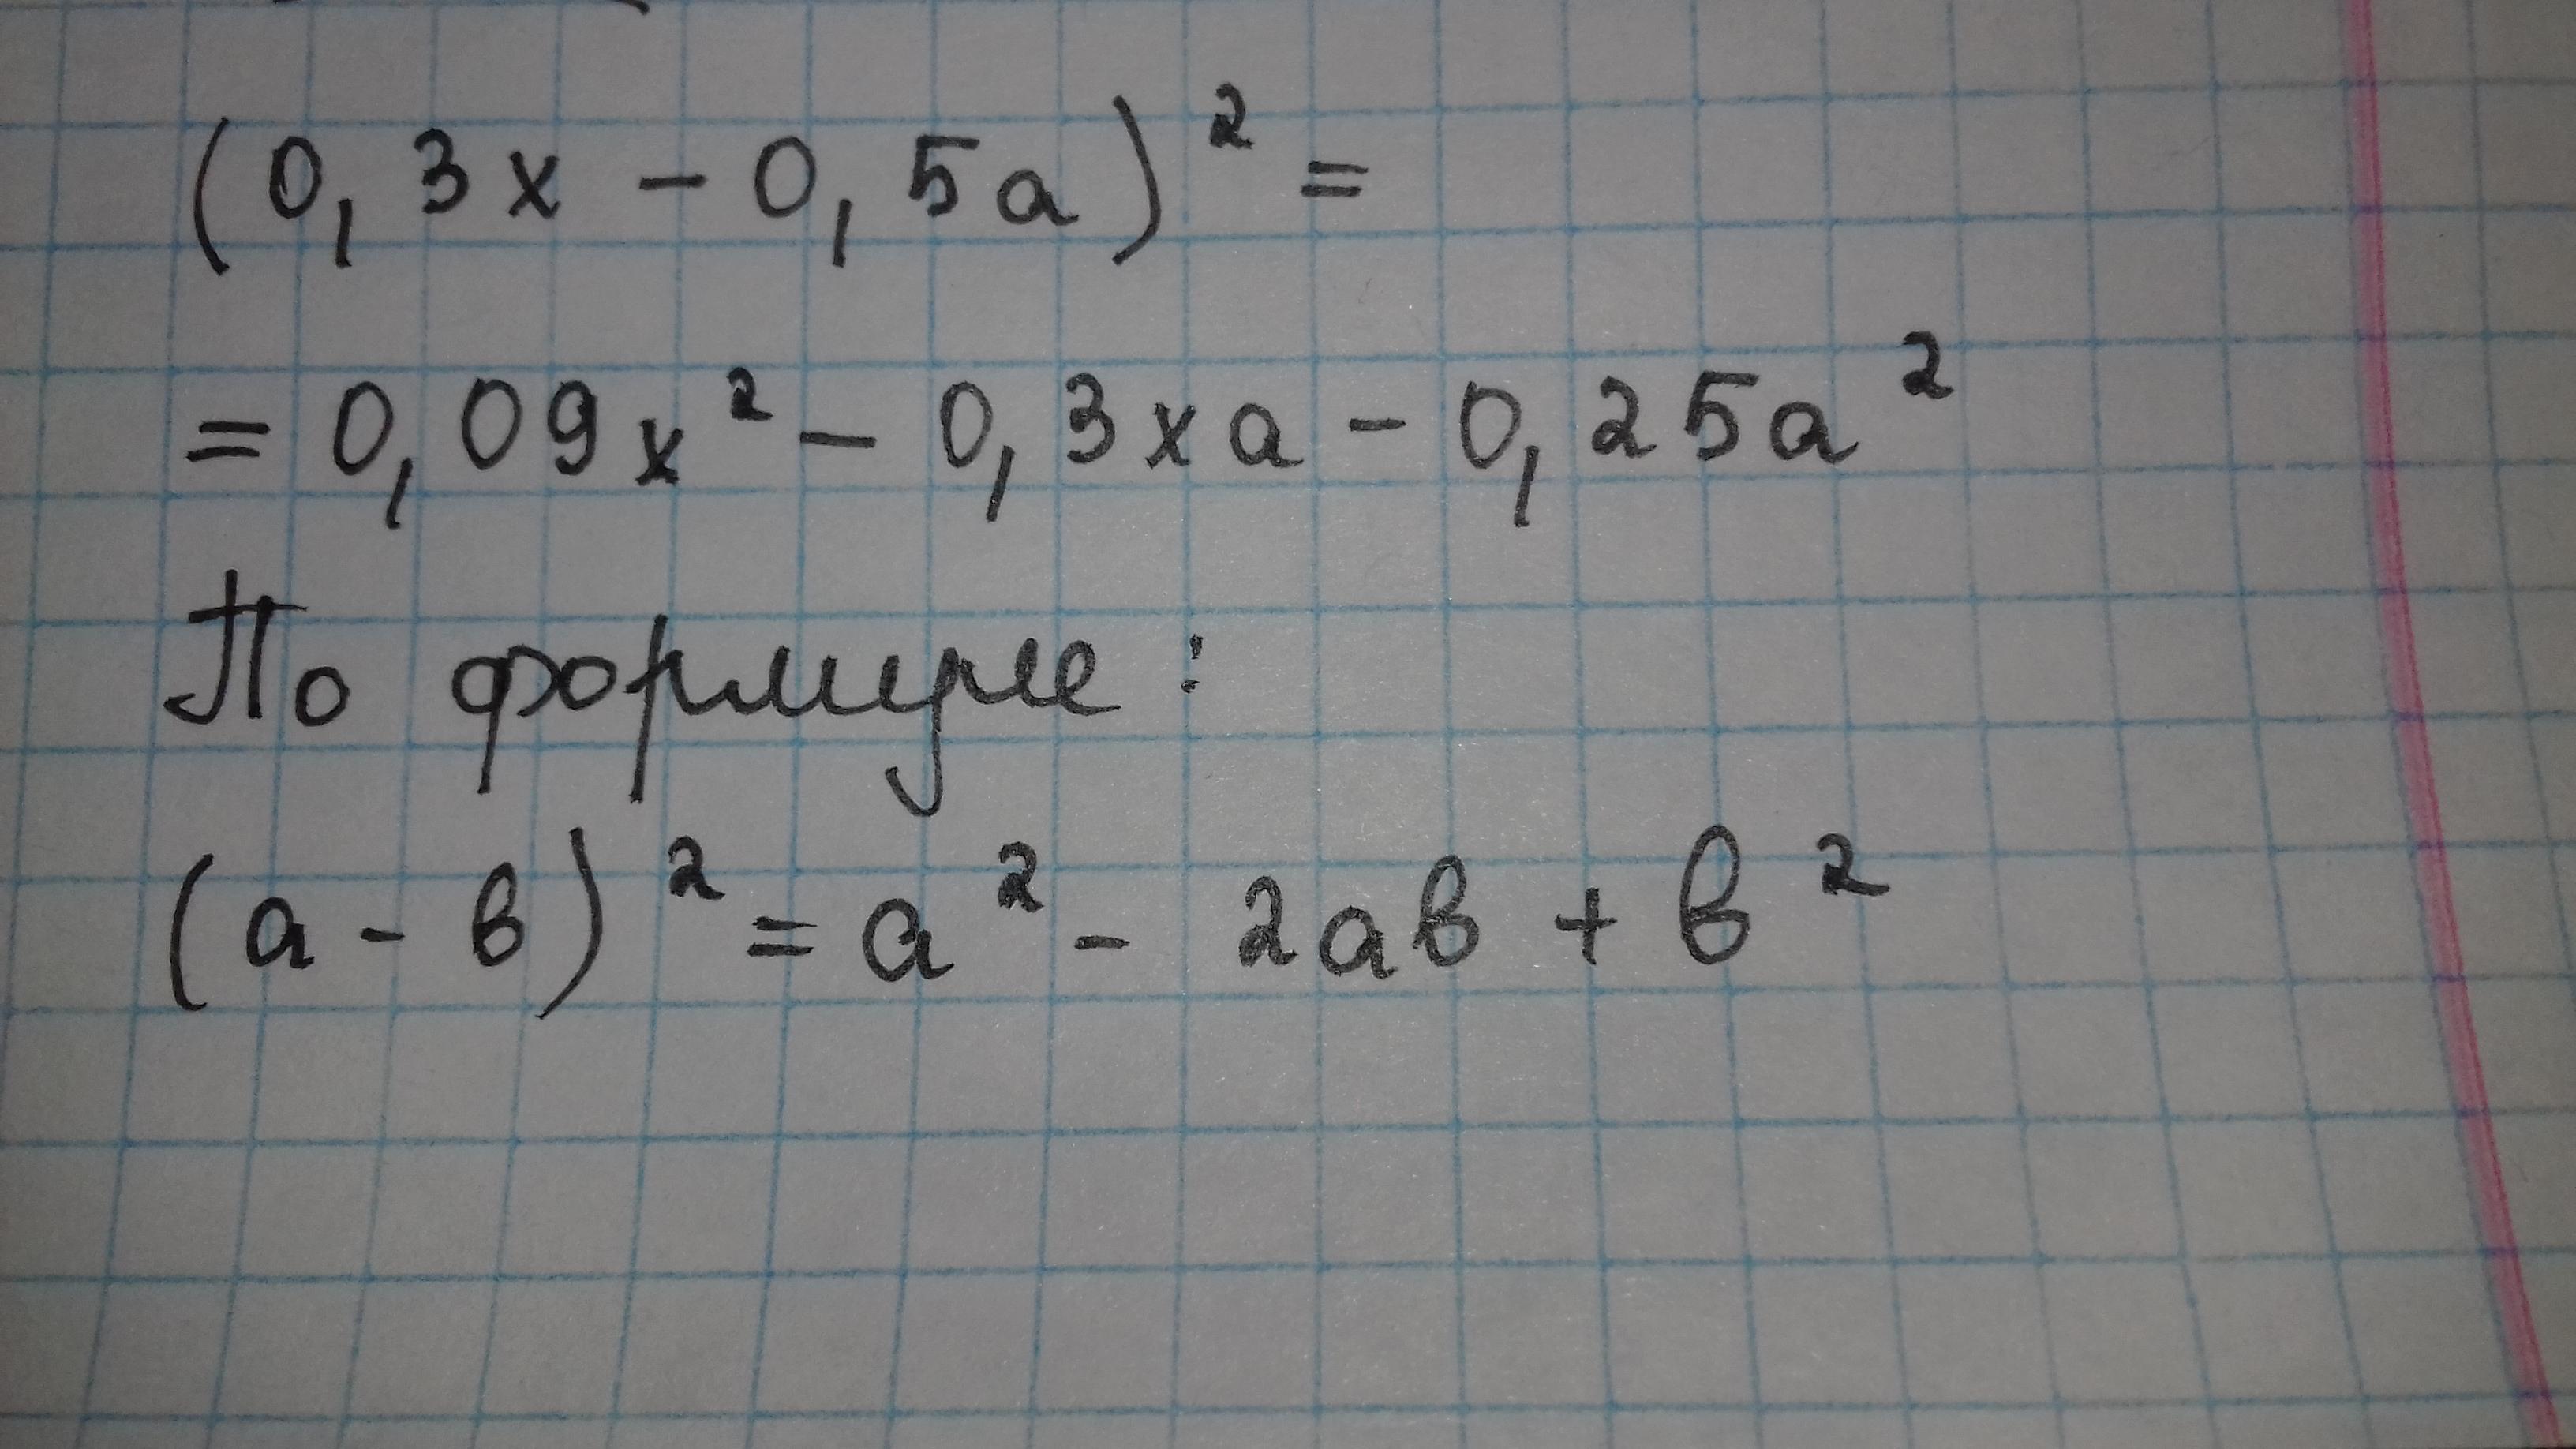 (0,3x - 0,5a)² =
= 0,09x² - 0,3xa - 0,25a²
По формуле:
(a - в)² = a² - 2aв + в²